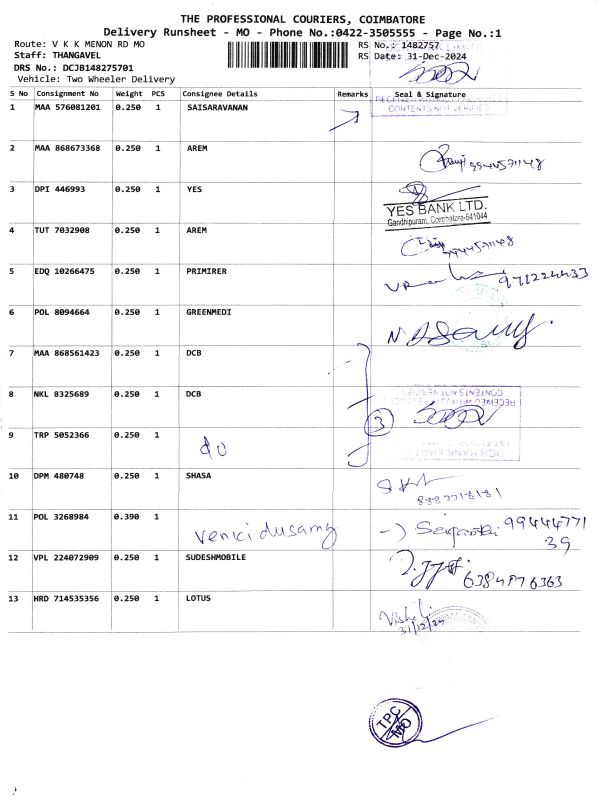 THE PROFESSIONAL COURIERS, COIMBATORE
Delivery Runsheet - MO - Phone No.:0422-3505555 - Page No.:1
Route: V K K MENON RD MO
RS No.: 1482757
Staff: THANGAVEL
RS Date: 31-Dec-2024
DRS No.: DCJB148275701
Vehicle: Two Wheeler Delivery
S No Consignment No Weight PCS Consignee Details Remarks Seal & Signature
CONTENTS NOT VERIFIED
1 MAA 576081201 0.250 1 SAISARAVANAN
2 MAA 868673368 0.250 1 AREM
9944571148
3 DPI 446993 0.250 1 YES
YES BANK LTD.
Gandhipuram, Coimbatore-641044
4 TUT 7032908 0.250 1 AREM
9944571148
5 EDQ 10266475 0.250 1 PRIMIRER
971224433
6 POL 8094664 0.250 1 GREENMEDI
7 MAA 868561423 0.250 1 DCB
8 NKL 8325689 0.250 1 DCB
3
9 TRP 5052366 0.250 1 do
10 DPM 480748 0.250 1 SHASA
8883718181
11 POL 3268984 0.390 1 venicidusamy
9944477139
12 VPL 224072909 0.250 1 SUDESHMOBILE
6384876363
13 HRD 714535356 0.250 1 LOTUS
31/12/24
TPC
MO